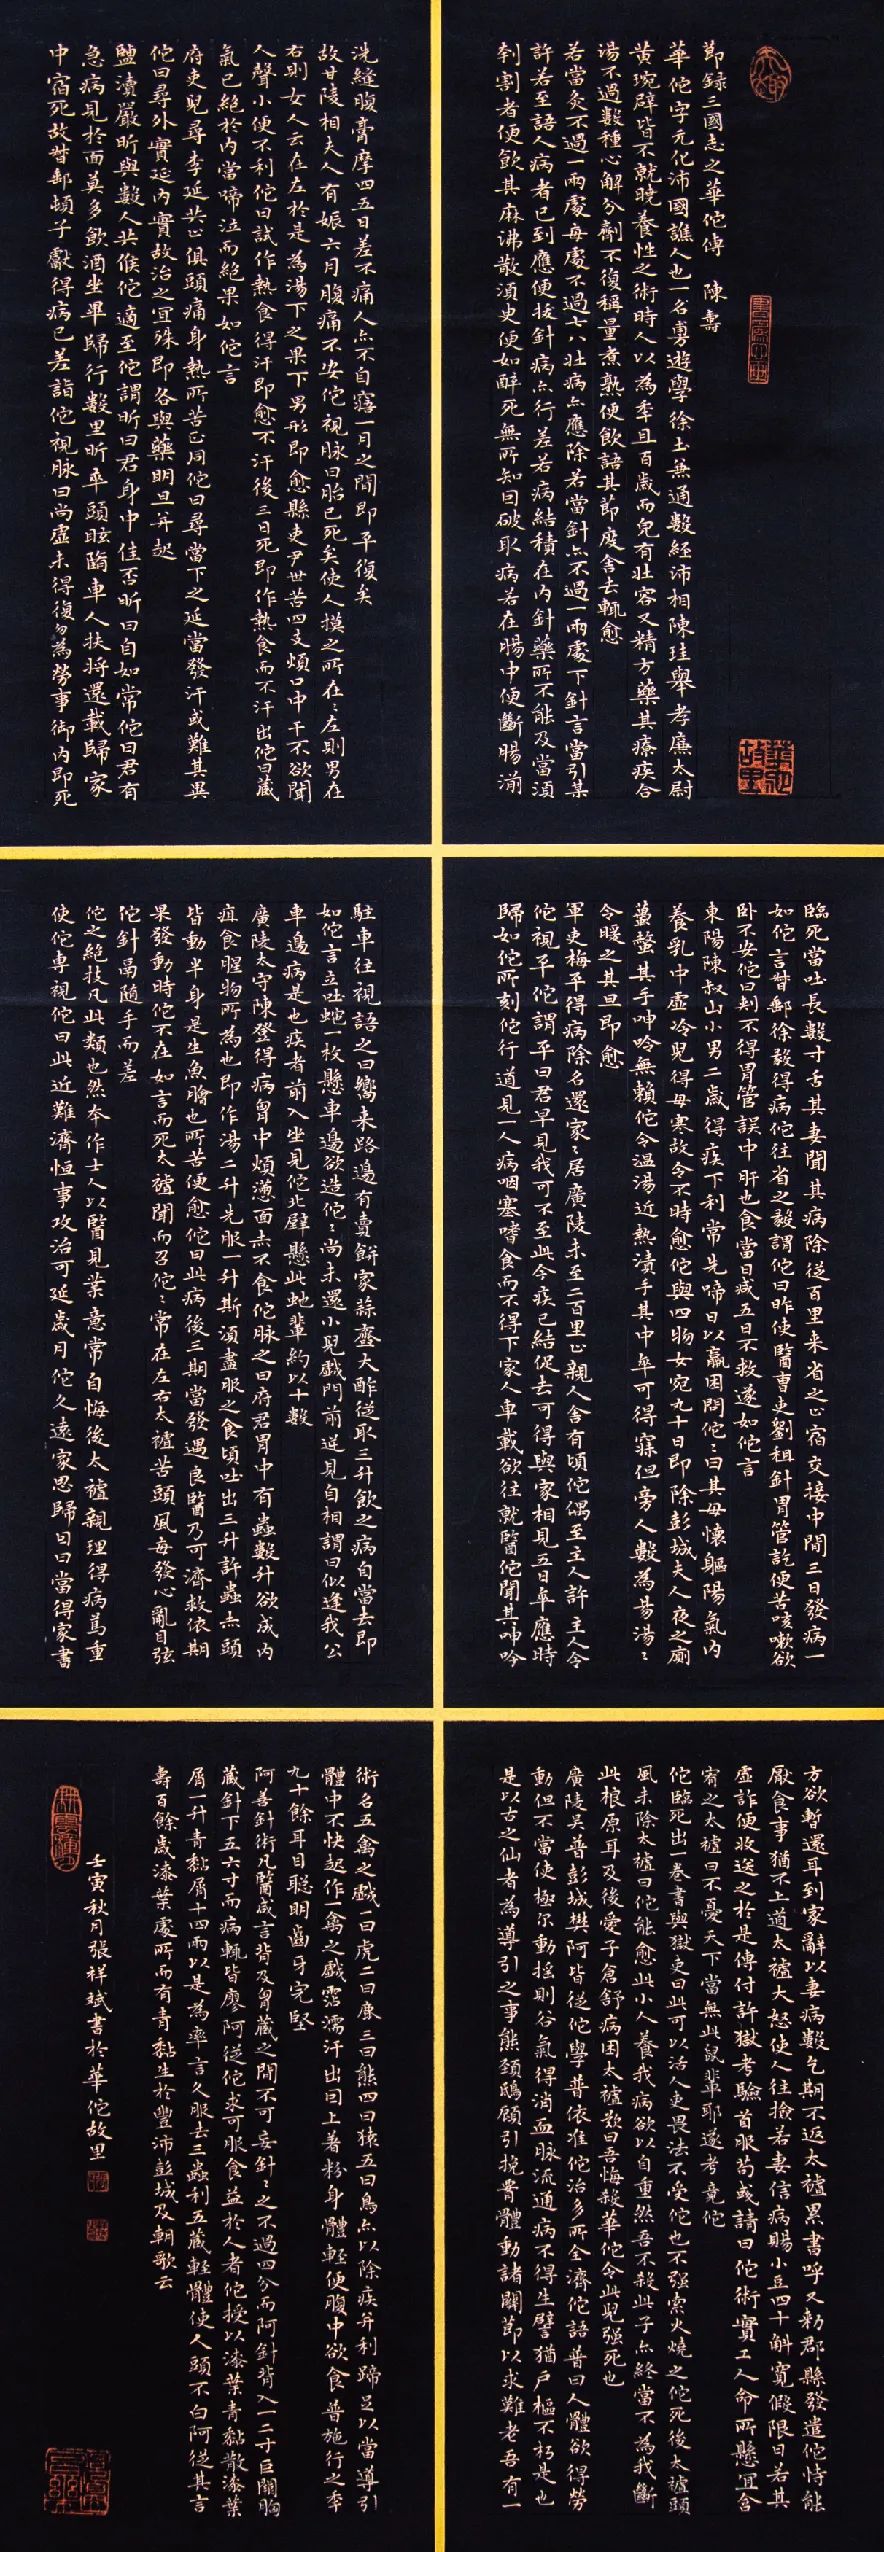 節録三國志之華佗傳 陳壽
華佗字元化沛國譙人也一名旉遊學徐土兼通數經沛相陳珪舉孝廉太尉
黃琬辟皆不就曉養性之術時人以為年且百歲而皃有壯容又精方藥其療疾合
湯不過數種心解分劑不復稱量煮熟便飲語其節度舍去輒愈
若當灸不過一兩處每處不過七八壯病亦應除若當針亦不過一兩處下針言當引某
許若至語人病者已到應便拔針病亦行差若病結積在內針藥所不能及當須
刳割者便飲其麻沸散須臾便如醉死無所知因破取病若在腸中便斷腸湔
華佗故里
洗縫腹膏摩四五日差不痛人亦不自寤一月之間即平復矣
故甘陵相夫人有娠六月腹痛不安佗視脉曰胎已死矣使人摸之所在〻左則男在
右則女人云在左於是為湯下之果下男形即愈縣吏尹世苦四支煩口中干不欲聞
人聲小便不利佗曰試作熱食得汗即愈不汗後三日死即作熱食而不汗出佗曰藏
氣已絕於內當啼泣而絕果如佗言
府吏兒尋李延共止俱頭痛身熱所苦正同佗曰尋當下之延當發汗或難其異
佗曰尋外實延內實故治之宜殊即各與藥明旦并起
鹽瀆嚴昕與數人共候佗適至佗謂昕曰君身中佳否昕曰自如常佗曰君有
急病見於面莫多飲酒坐畢歸行數里昕卒頭眩墮車人扶將還載歸家
中宿死故督郵頓子獻得病已差詣佗視脉曰尚虛未得復勿為勞事御內即死
臨死當吐長數寸舌其妻聞其病除從百里来省之止宿交接中間三日發病一
如佗言督郵徐毅得病佗往省之毅謂佗曰昨使醫曹吏劉租針胃管訖便苦咳嗽欲
卧不安佗曰刺不得胃管誤中肝也食當日减五日不救遂如佗言
東陽陳叔山小男二歲得疾下利常先啼日以羸困問佗〻曰其母懷軀陽氣內
養乳中虛冷兒得母寒故令不時愈佗與四物女宛丸十日即除彭城夫人夜之廁
蠆螫其手呻呤無賴佗令温湯近熱漬手其中卒可得寐但旁人數為昜湯〻
令暖之其旦即愈
軍吏梅平得病除名還家〻居廣陵未至二百里止親人舍有頃佗偶至主人許主人令
佗視平佗謂平曰君早見我可不至此今疾已結促去可得與家相見五日卒應時
歸如佗所刻佗行道見一人病咽塞嗜食而不得下家人車載欲往就醫佗聞其呻吟
駐車往視語之曰嚮来路邊有賣餅家蒜齏大酢從取三升飲之病自當去即
如佗言立吐蛇一枚懸車邊欲造佗〻尚未還小兒戲門前逆見自相謂曰似逢我公
車邊病是也疾者前入坐見佗北壁懸此蛇輩約以十數
廣陵太守陳登得病胷中煩懣面赤不食佗脉之曰府君胃中有蟲數升欲成內
疽食腥物所為也即作湯二升先服一升斯須盡服之食頃吐出三升許蟲赤頭
皆動半身是生魚膾也所苦便愈佗曰此病後三期當發遇良醫乃可濟救依期
果發動時佗不在如言而死太祖聞而召佗〻常在左右太祖苦頭風每發心亂目弦
佗針鬲随手而差
佗之絕技凡此類也然本作士人以醫見業意常自悔後太祖親理得病篤重
使佗專視佗曰此近難濟恒事攻治可延歲月佗久遠家思歸因曰當得家書
方欲暫還耳到家辭以妻病數乞期不返太祖累書呼又勑郡縣發遣佗恃能
厭食事猶不上道太祖大怒使人往撿若妻信病賜小豆四十斛寬假限日若其
虛詐便收送之於是傳付許獄考驗首服荀彧請曰佗術實工人命所懸宜含
宥之太祖曰不憂天下當無此鼠輩耶遂考竟佗
佗臨死出一卷書與獄吏曰此可以活人吏畏法不受佗也不强索火燒之佗死後太祖頭
風未除太祖曰佗能愈此小人養我病欲以自重然吾不殺此子亦終當不為我斷
此根原耳及後愛子倉舒病困太祖歎曰吾悔殺華佗令此兒强死也
廣陵吳普彭城樊阿皆從佗學普依准佗治多所全濟佗語普曰人體欲得勞
動但不當使極尔動摇則谷氣得消血脉流通病不得生譬猶户樞不朽是也
是以古之仙者為導引之事熊頸鴟顧引挽脊體動諸關節以求難老吾有一
術名五禽之戲一曰虎二曰鹿三曰熊四曰猿五曰鳥亦以除疾并利蹄足以當導引
體中不快起作一禽之戲霑濡汗出因上著粉身體輕便腹中欲食普施行之年
九十餘耳目聰明齒牙完堅
阿善針術凡醫咸言背及胷藏之間不可妄針〻之不過四分而阿針背入一二寸巨闕胸
藏針下五六寸而病輒皆廖阿從佗求可服食益於人者佗授以漆葉青黏散漆葉
屑一升青黏屑十四兩以是為率言久服去三蟲利五藏輕體使人頭不白阿從其言
壽百餘歲漆葉處所而有青黏生於豐沛彭城及朝歌云
壬寅秋月張祥斌書於華佗故里